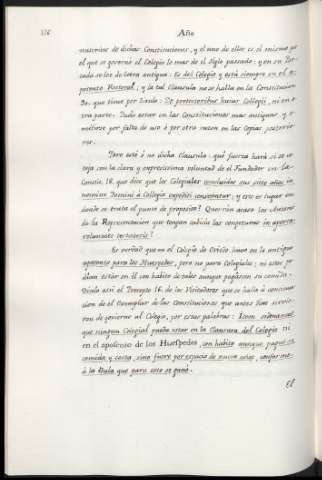 376 Año
nuscritos de dichas Constituciones, y el uno de ellos es el mismo por
el que se governó el Colegio lo mas de el siglo passado: y en su Por-
tada se lee de letra antigua: Es del Colegio y está siempre en el a-
posento Rectoral, y la tal Clausula no se halla en la Constitucion
que tiene por titulo: De protectoribus hujus Collegii, ni en o-
tra parte. Pudo estar en las Constituciones mas antiguas, y o-
mitirse por falta de uso ó por otra razon en las Copias posterio-
res.
Pero esté ó no dicha Clausula: qué fuerza hará si se co-
teja con la clara y expressissima voluntad de el Fundador en la
Constit. 18. que dice que los Colegiales concluidos sus siete años in
nomine Domini à Collegio expediti censeantur: y esto es lugar en
donde se trata el punto de proposito? Querrán acaso los Autores
de la Representacion que tengan cabida las conjeturas in aperta
voluntate testatoris?
Es verdad que en el Colegio de Oviedo havia en lo antiguo
aposento para los Huespedes, pero no para Colegiales; ni estos po-
dian estár en él con habito de tales aunque pagassen su comida.
Dicelo assi el Precepto 16. de los Visitadores que se halla à continua-
cion de el Exemplar de las Constituciones que antes dixe sirvie-
ron de govierno al Colegio, por estas palabras: Item ordenamos
que ningun Colegial pueda estar en la Clausura del Colegio ni
en el aposento de los Huespedes, con habito aunque pague su
comida y costa, sino fuere por espacio de nueve años, conforme
à la Bula que para esto se ganó.
El